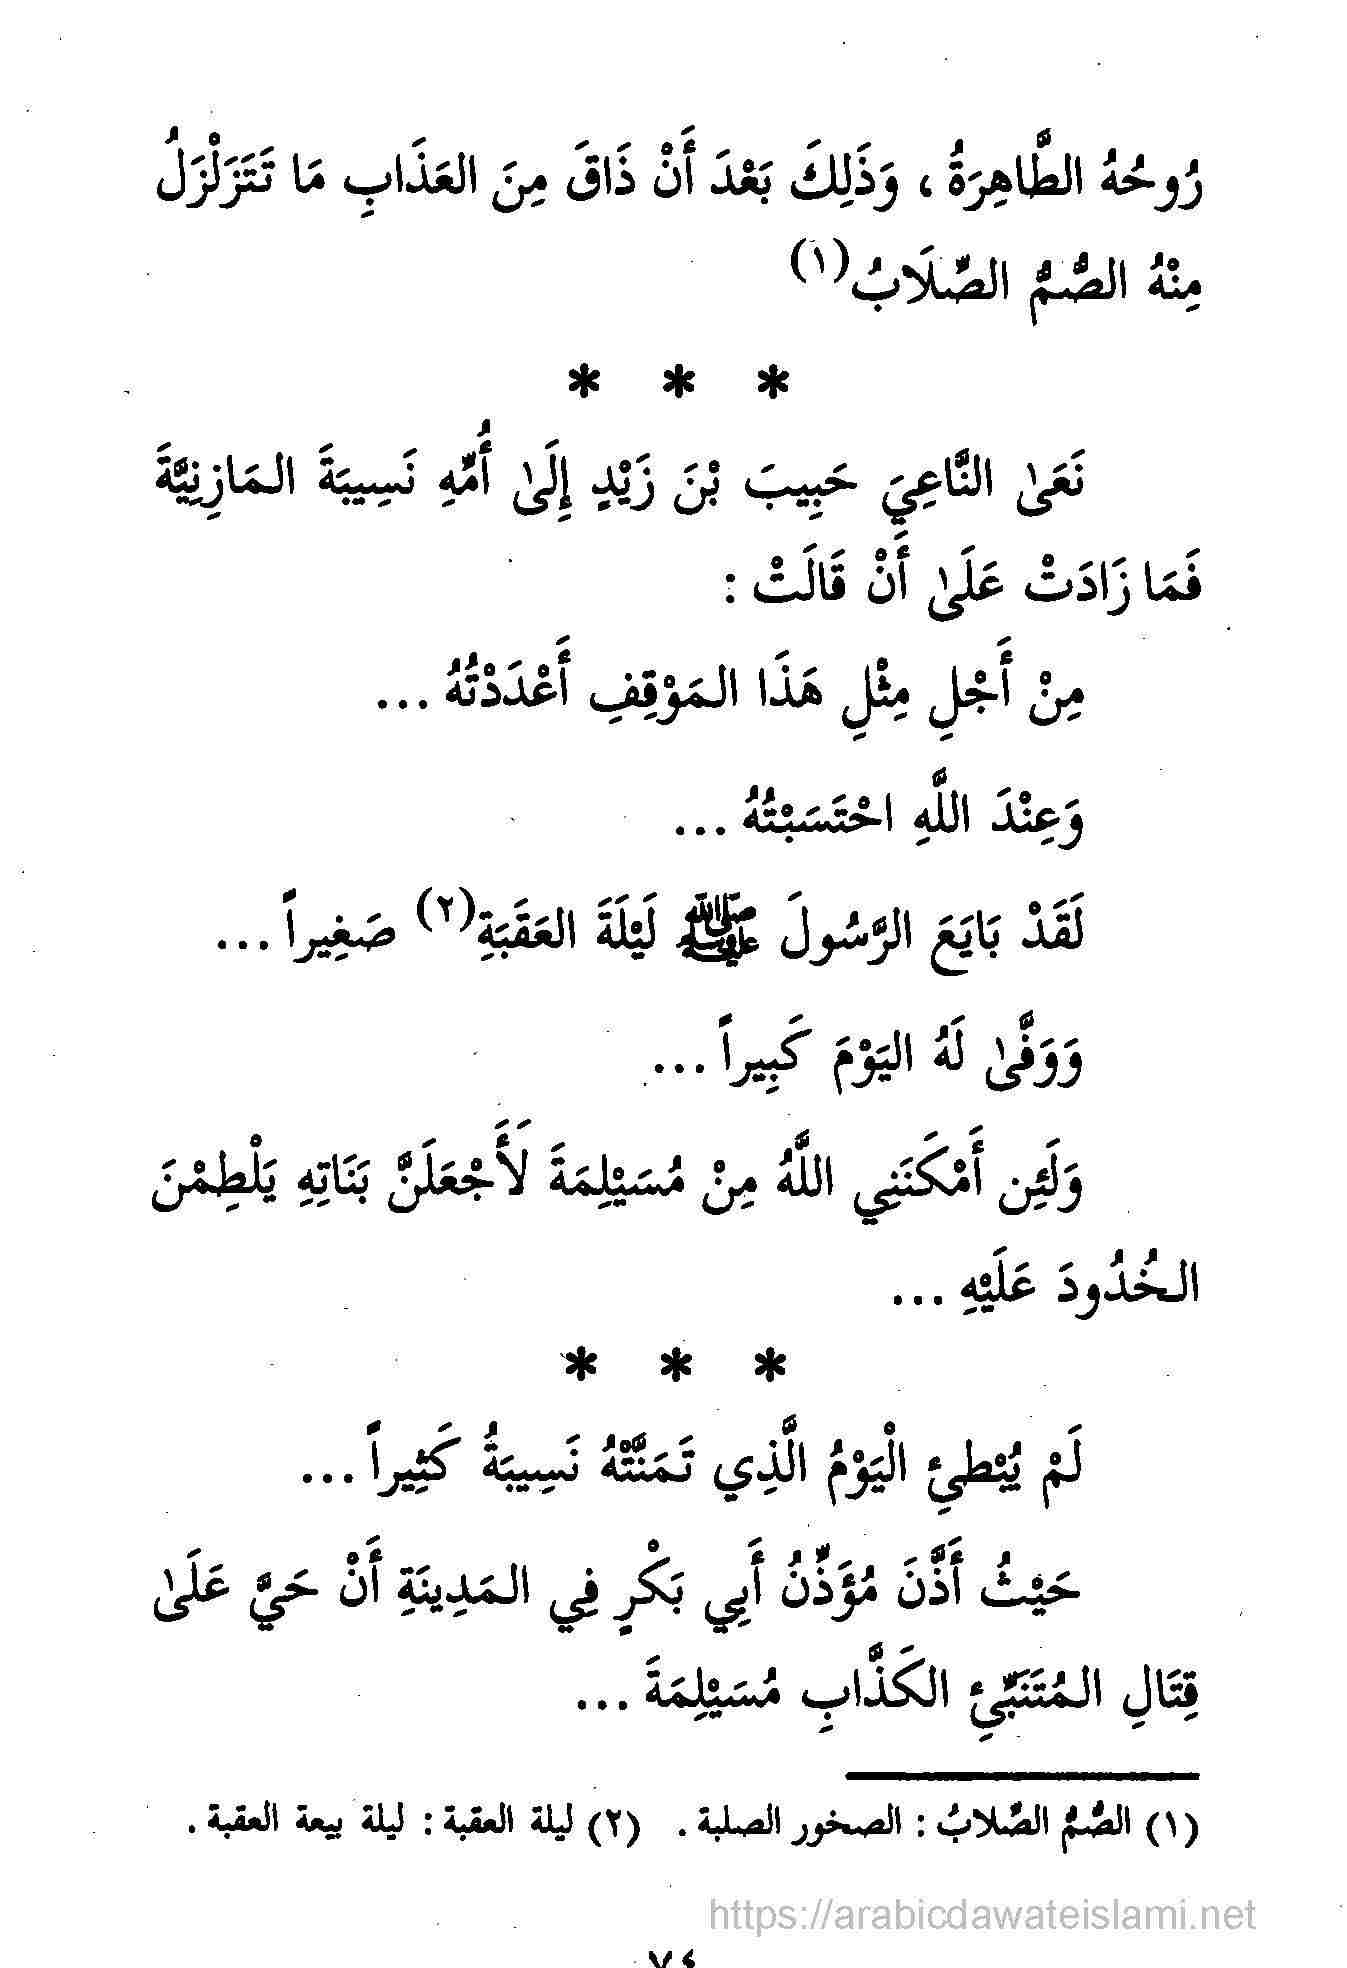 رُوحُهُ الطَّاهِرَةُ ، وَذَلِكَ بَعْدَ أَنْ ذَاقَ مِنَ العَذَابِ مَا تَتَزَلْزَلُ
مِنْهُ الصُّمُّ الصِّلَابُ(١)
* * *
نَعَىٰ النَّاعِيَ حَبِيبَ بْنَ زَيْدٍ إِلَىٰ أُمِّهِ نَسِيبَةَ المَازِنِيَّةَ
فَمَا زَادَتْ عَلَىٰ أَنْ قَالَتْ :
مِنْ أَجْلِ مِثْلِ هَذَا المَوْقِفِ أَعْدَدْتُهُ ...
وَعِنْدَ اللَّهِ احْتَسَبْتُهُ ...
لَقَدْ بَايَعَ الرَّسُولَ ﷺ لَيْلَةَ العَقَبَةِ(٢) صَغِيراً ...
وَوَفَّىٰ لَهُ اليَوْمَ كَبِيراً ...
وَلَئِن أَمْكَنَنِي اللَّهُ مِنْ مُسَيْلِمَةَ لَأَجْعَلَنَّ بَنَاتِهِ يَلْطِمْنَ
الخُدُودَ عَلَيْهِ ...
* * *
لَمْ يُبْطئِ الْيَوْمُ الَّذِي تَمَنَّتْهُ نَسِيبَةُ كَثِيراً ...
حَيْثُ أَذَّنَ مُؤَذِّنُ أَبِي بَكْرٍ فِي المَدِينَةِ أَنْ حَيَّ عَلَىٰ
قِتَالِ المُتَنَبِّئِ الكَذَّابِ مُسَيْلِمَةَ ...
(١) الصُّمُّ الصِّلابُ : الصخور الصلبة . (٢) ليلة العقبة : ليلة بيعة العقبة .
https://arabicdawateislami.net
٧٤